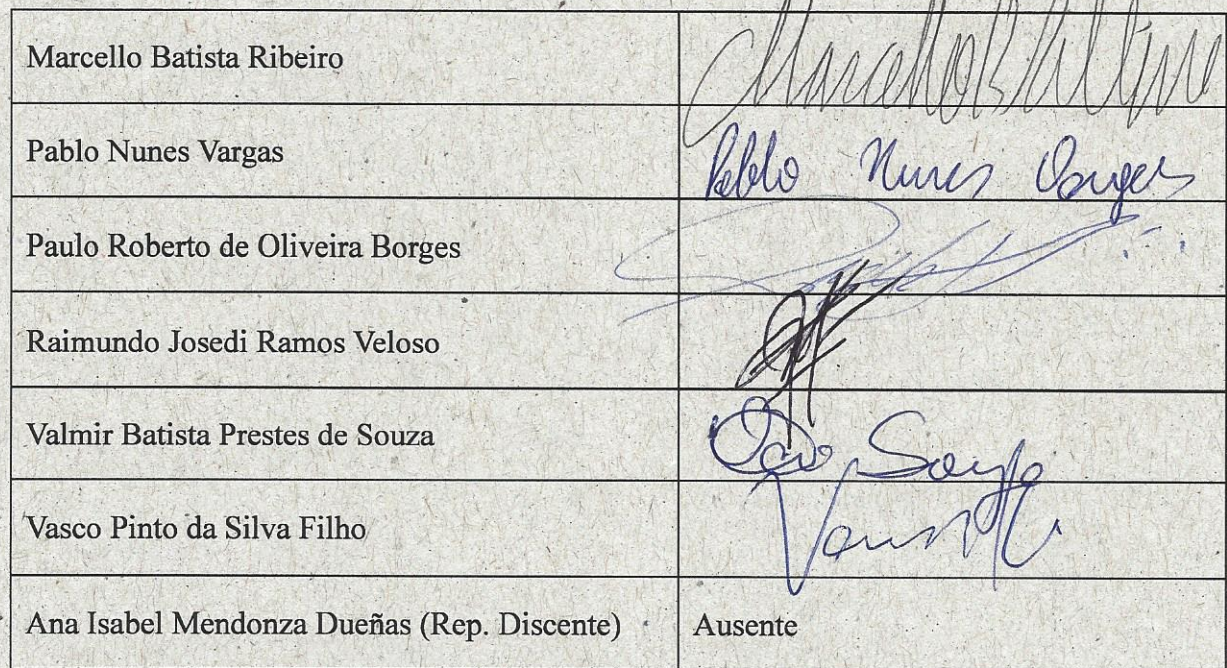 Marcello Batista Ribeiro
Pablo Nunes Vargas
Pablo Nunes Vargas
Paulo Roberto de Oliveira Borges
Raimundo Josedi Ramos Veloso
Valmir Batista Prestes de Souza
Souza
Vasco Pinto da Silva Filho
Ana Isabel Mendonza Dueñas (Rep. Discente) Ausente